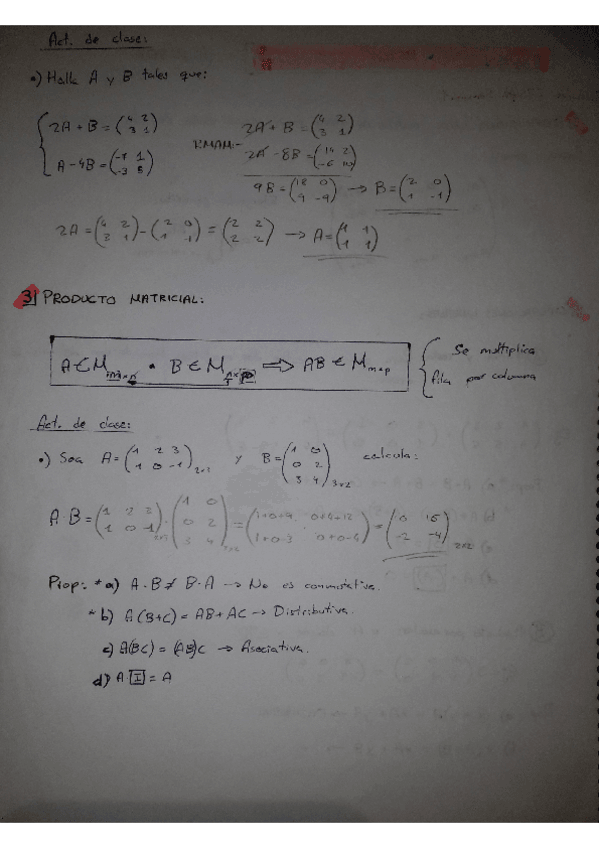 Act. de clase:
•) Halla A y B tales que:
{ 2A + B = (4 2 / 3 1)
A - 4B = (-7 1 / -3 5)
2A + B = (4 2 / 3 1)
2A - 8B = (14 2 / -6 10)
9B = (18 0 / 9 -9) → B = (2 0 / 1 -1)
2A = (4 2 / 3 1) - (2 0 / 1 -1) = (2 2 / 2 2) → A = (1 1 / 1 1)
3) PRODUCTO MATRICIAL:
A ∈ M m×n • B ∈ M n×p ⇒ AB ∈ M m×p { Se multiplica fila por columna
Act. de clase:
•) Sea A = (1 2 3 / 1 0 -1) 2×2 y B = (1 0 / 0 2 / 3 4) 3×2 calcula:
A·B = (1 2 3 / 1 0 -1) · (1 0 / 0 2 / 3 4) = (1+0+9 0+4+12 / 1+0-3 0+0-4) = ( 16 / -2 -4) 2×2
Prop: * a) A·B ≠ B·A → No es conmutativa.
* b) A(B+C) = AB + AC → Distributiva.
c) A(BC) = (AB)C → Asociativa.
d) A I = A